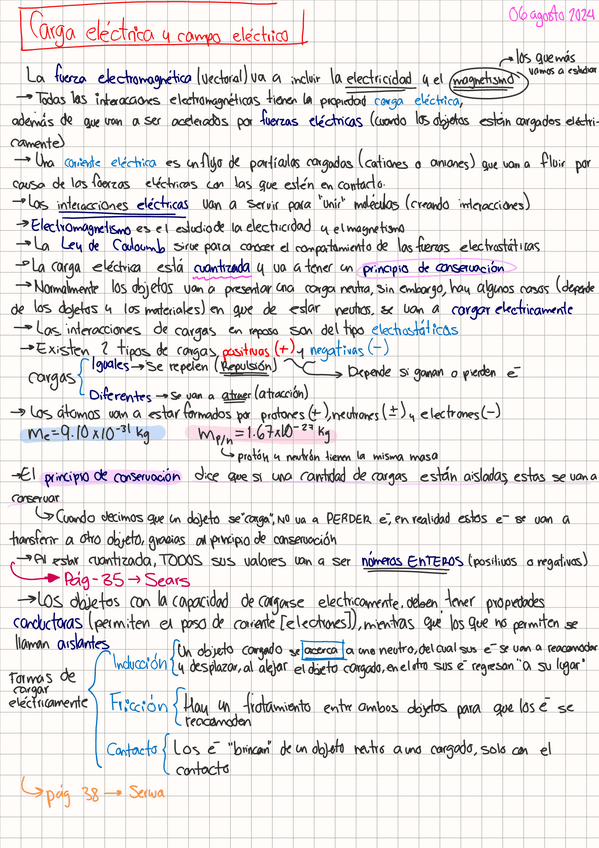 06 agosto 2024
Carga eléctrica y campo eléctrico
los que más
vamos a estudiar
La fuerza electromagnética (vectorial) va a incluir la electricidad y el magnetismo
→ Todas las interacciones electromagnéticas tienen la propiedad carga eléctrica,
además de que van a ser acelerados por fuerzas eléctricas (cuando los objetos están cargados eléctri-
camente)
→ Una corriente eléctrica es un flujo de partículas cargadas (cationes o aniones) que van a fluir por
causa de las fuerzas eléctricas con las que estén en contacto.
→ Las interacciones eléctricas van a servir para "unir" moléculas (creando interacciones)
→ Electromagnetismo es el estudio de la electricidad y el magnetismo
→ La Ley de Couloumb sirve para conocer el compotamiento de las fuerzas electrostáticas
→ La carga eléctrica está cuantizada y va a tener un principio de conservación
→ Normalmente los objetos van a presentar una carga neutra, sin embargo, hay algunos casos (depende
de los objetos y los materiales) en que de estar neutros, se van a cargar electricamente
→ Las interacciones de cargas en reposo son del tipo electrostáticas
→ Existen 2 tipos de cargas, positivas (+) y negativas (-)
cargas { Iguales → Se repelen (Repulsión) Depende si ganan o pierden e⁻
Diferentes → Se van a atraer (atracción)
→ Los átomos van a estar formados por protones (+), neutrones (±) y electrones (-)
Me = 9.10 x10⁻³¹ kg Mp/n = 1.67x10⁻²⁷ kg
↳ protón y neutrón tienen la misma masa
→ El principio de conservación dice que si una cantidad de cargas están aisladas, estas se van a
conservar
↳ Cuando decimos que un objeto se "carga", NO va a PERDER e⁻, en realidad estos e⁻ se van a
transferir a otro objeto, gracias al principio de conservación
→ Al estar cuantizada, TODOS sus valores van a ser números ENTEROS (positivos o negativas)
→ Pág-35 → Sears
→ Los objetos con la capacidad de cargarse electricamente, deben tener propiedades
conductoras (permiten el paso de corriente [electrones]), mientras que los que no permiten se
llaman aislantes
Formas de cargar eléctricamente
Inducción { Un objeto cargado se acerca a uno neutro, del cual sus e⁻ se van a reacomodar
y desplazar, al alejar el objeto cargado, en el otro sus e⁻ regresan "a su lugar"
Fricción { Hay un frotamiento entre ambos objetos para que los e⁻ se
reacomoden
Contacto { Los e⁻ "brincan" de un objeto neutro a uno cargado, solo con el
contacto
↳ pág 38 → Serwa